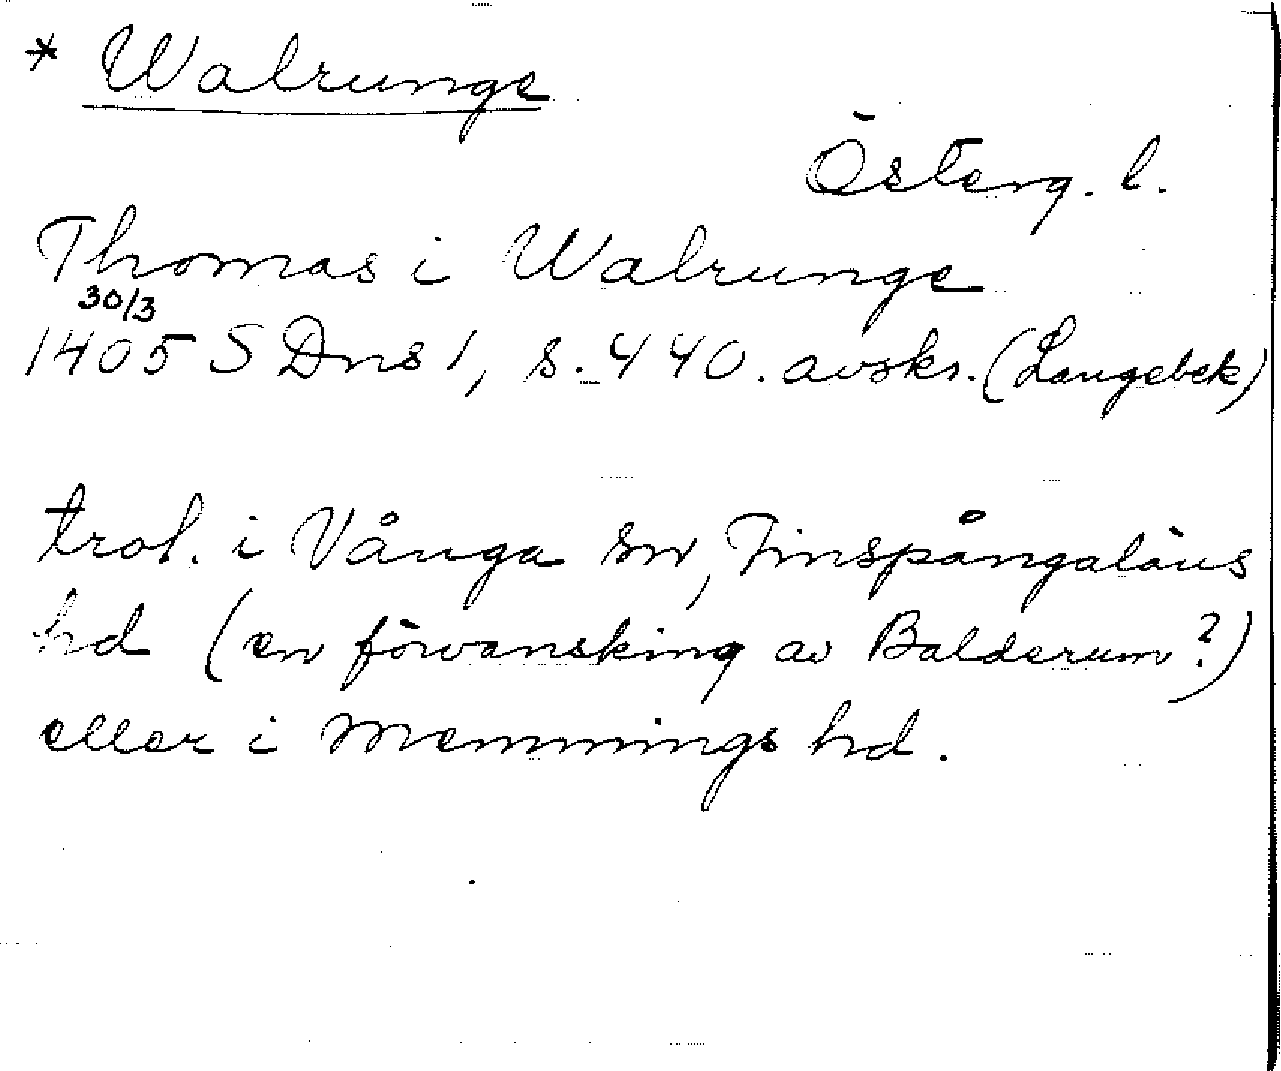 * Walrunge
Österg. l.
Thomas i Walrunge
30/3
1405 SDns 1, s. 440. avskr. (Langebek)
trol. i Vånga sn, Finspångaläns
hd (en förvanskning av Balderum?)
eller i Memmings hd.